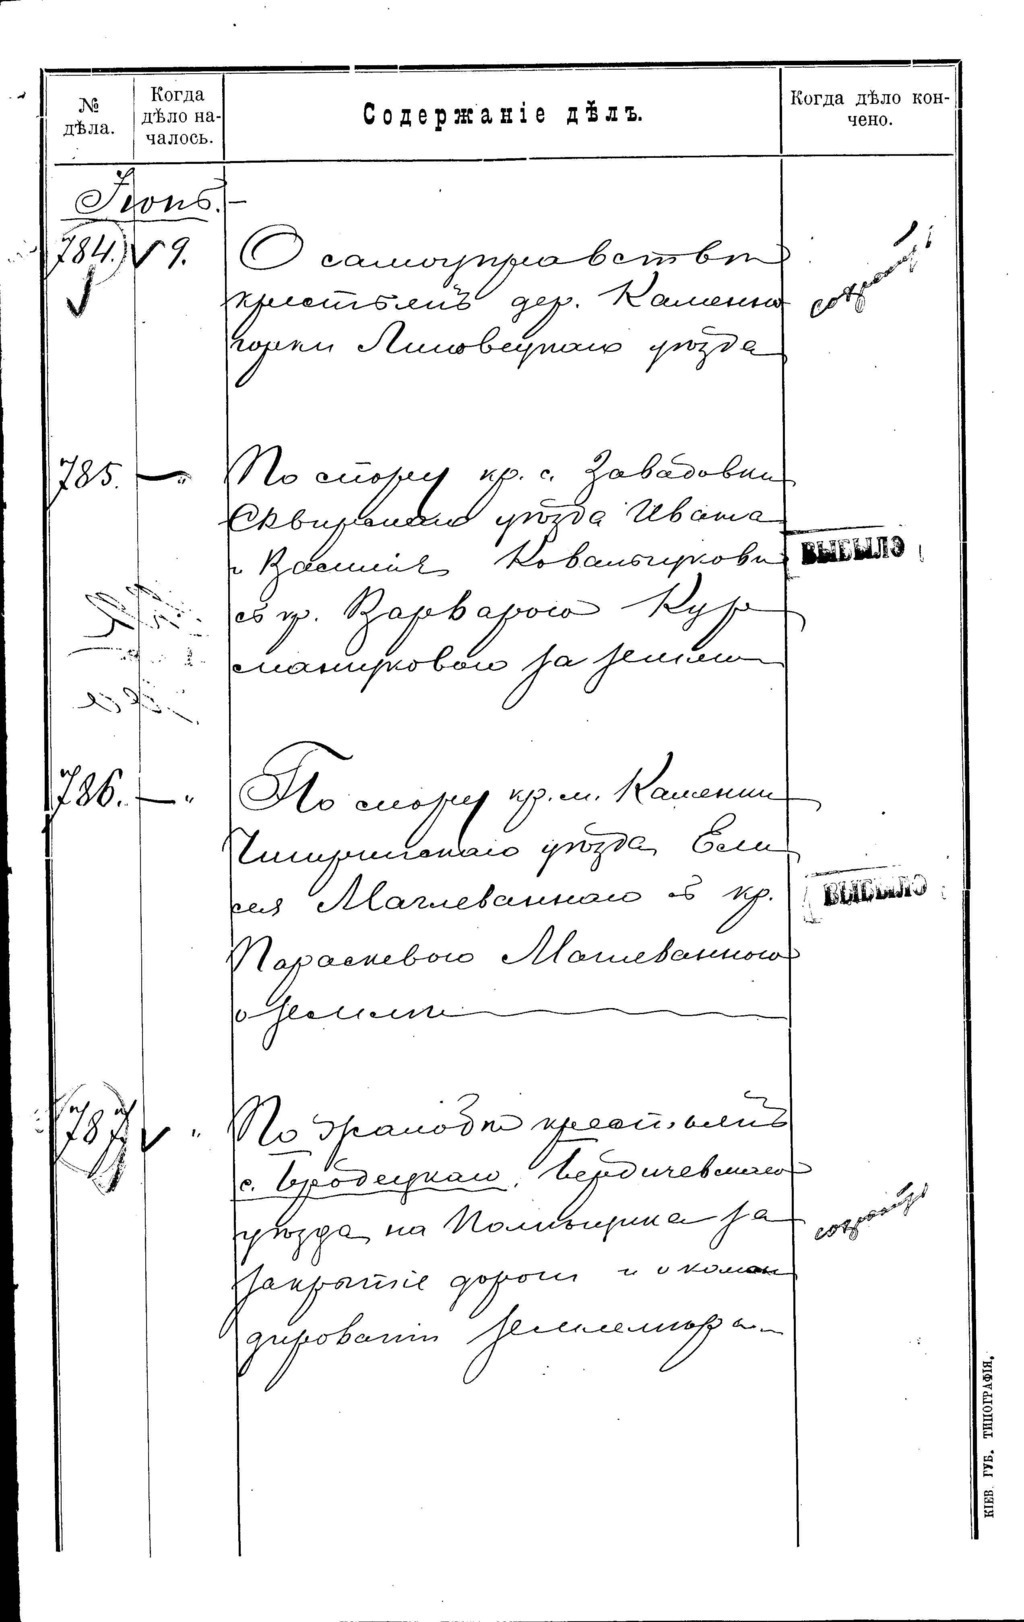 № дѣла.
Когда дѣло началось.
Содержаніе дѣлъ.
Когда дѣло кончено.
Іюнь.
784. 9. О самоуправствѣ
крестьянъ дер. Каменно
горки Липовецкаго уѣзда
785. — " По спору кр. с. Завадовки
Сквирскаго уѣзда Ивана
и Василія Ковальчуковы
съ кр. Варварою Кур
манчуковою за землю
ВЫБЫЛО
786. — " По спору кр. м. Каменки
Чигиринскаго уѣзда Ели
сея Маглеваннаго съ кр.
Параскевою Маглеванною
о землѣ
ВЫБЫЛО
787. " По жалобѣ крестьянъ
с. Бродецкаго, Бердичевскаго
уѣзда на Помѣщика за
закрытіе дороги и о коман
дированіи землемѣра
КІЕВ. ГУБ. ТИПОГРАФІЯ.